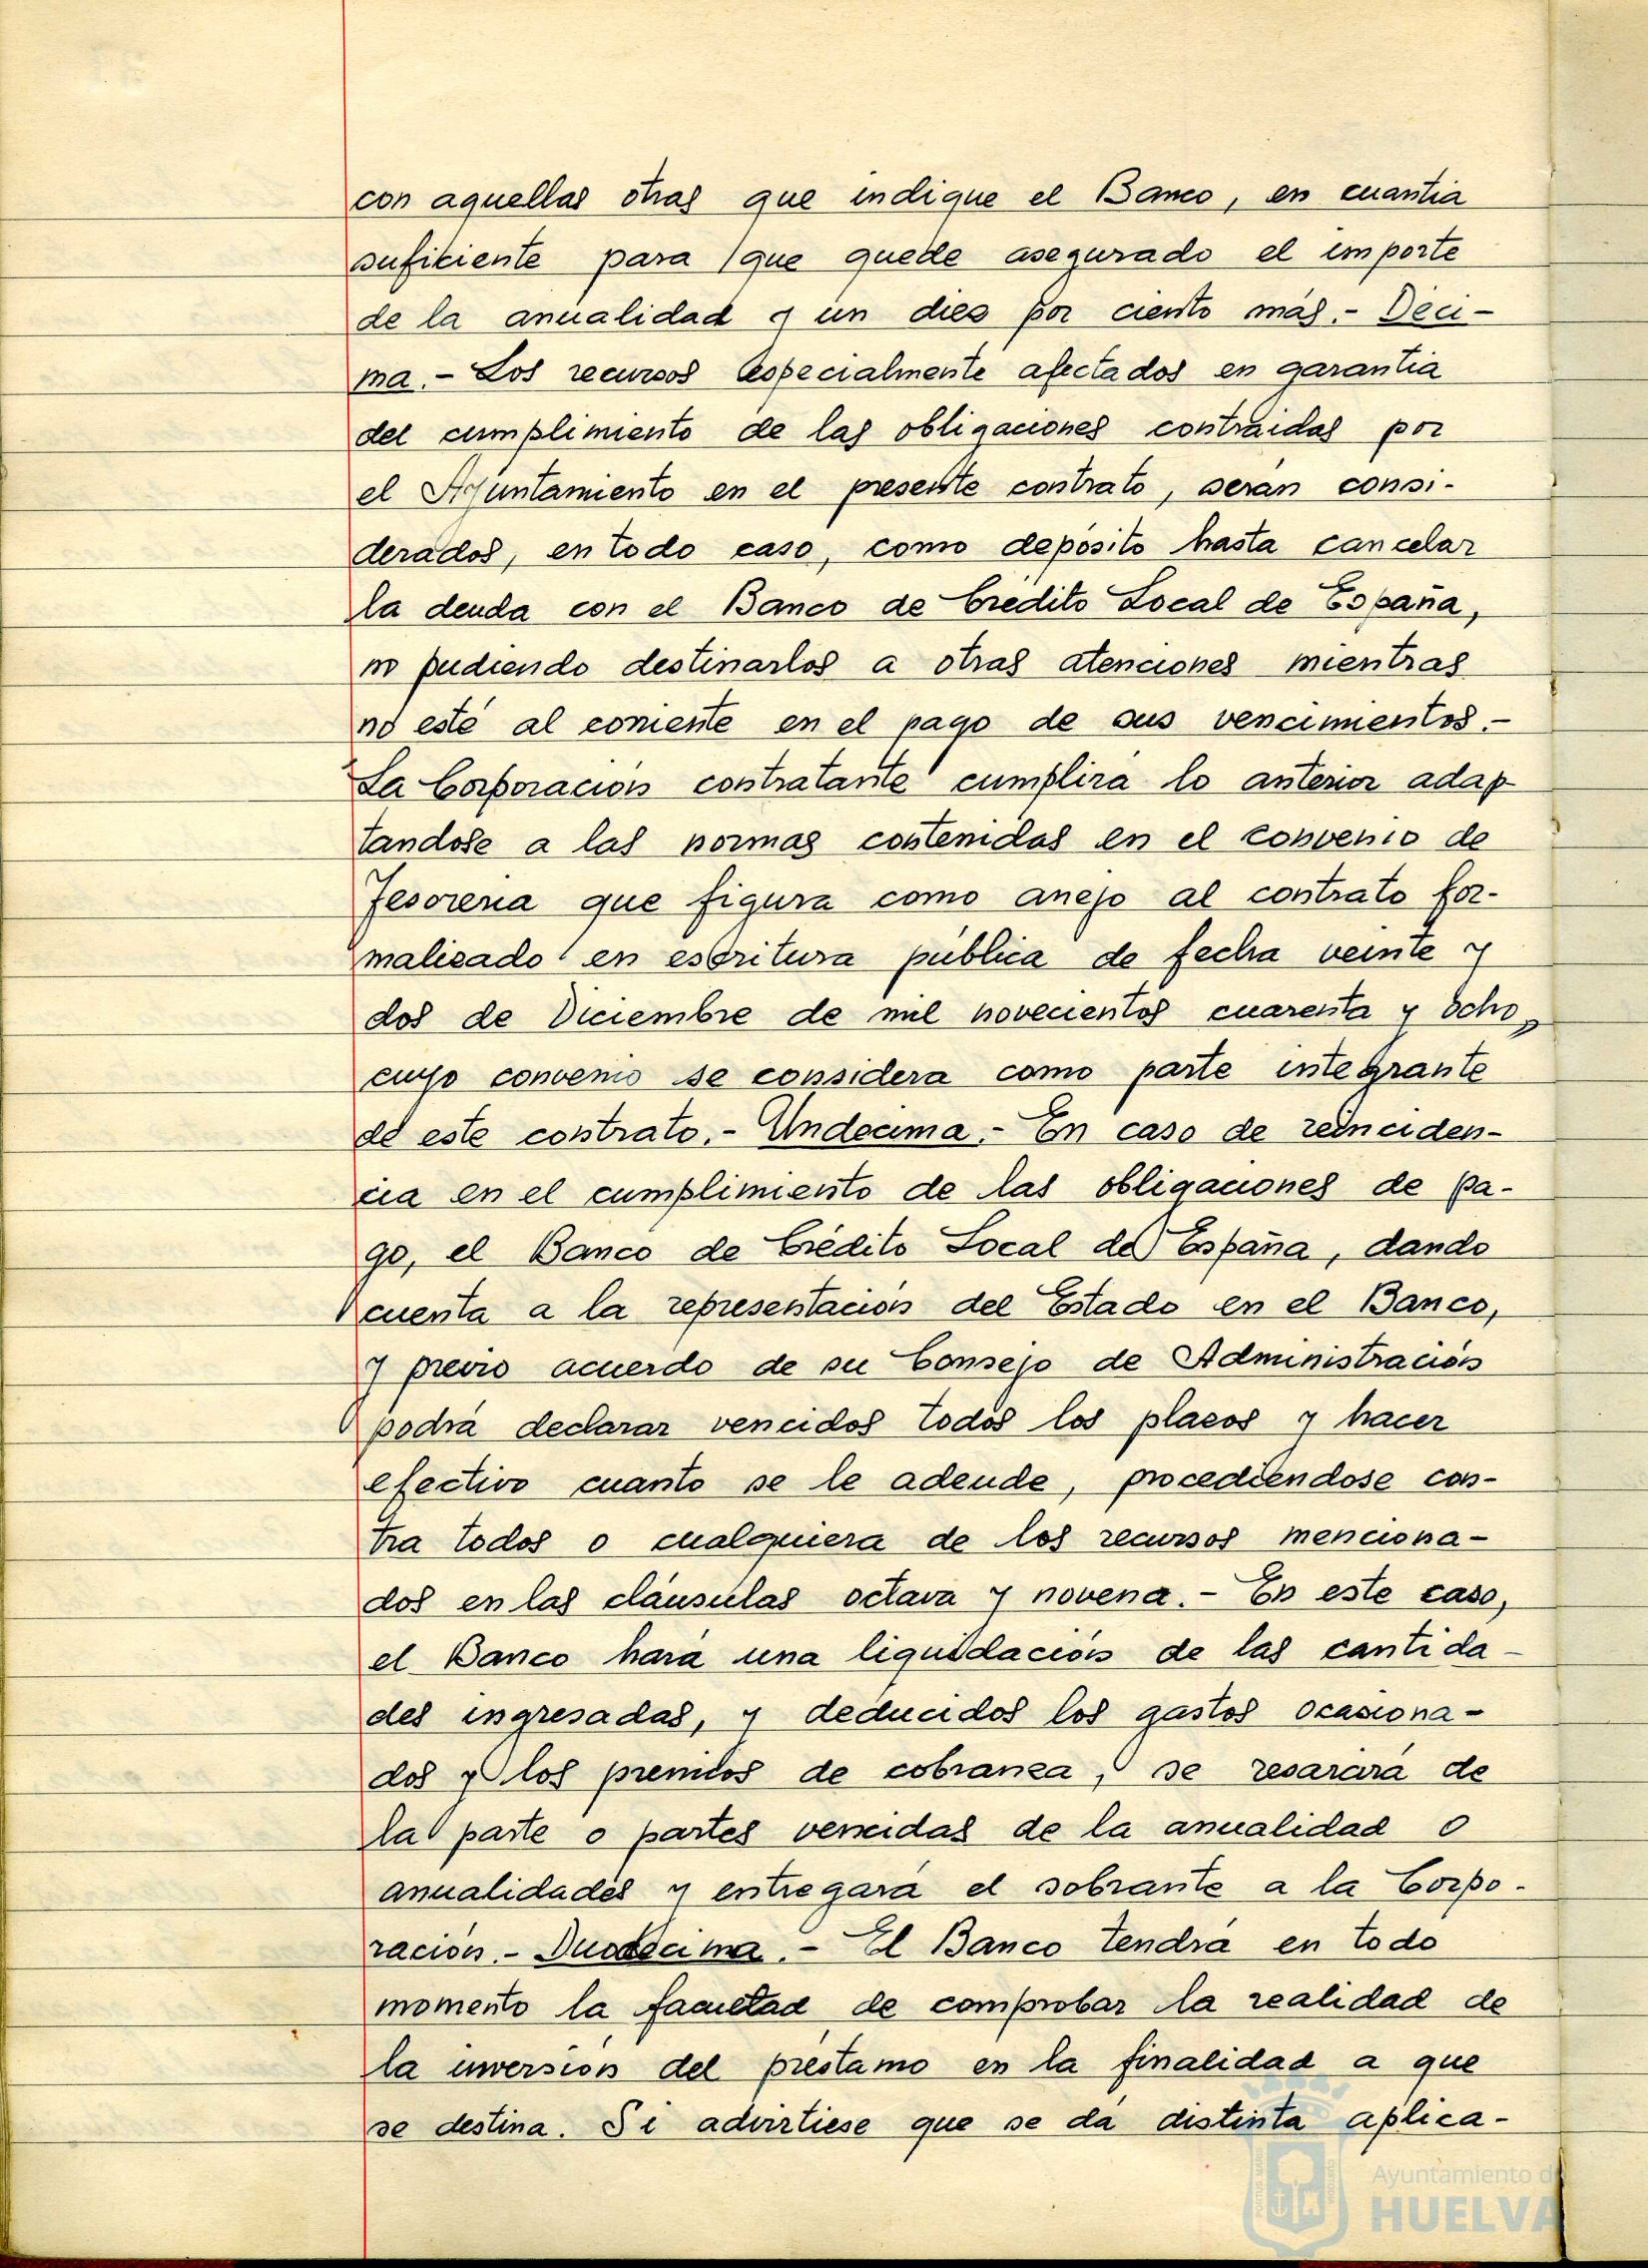 con aquellas otras que indique el Banco, en cuantia
suficiente para que quede asegurado el importe
de la anualidad y un diez por ciento más.- Déci-
ma.- Los recursos especialmente afectados en garantia
del cumplimiento de las obligaciones contraidas por
el Ayuntamiento en el presente contrato, serán consi-
derados, en todo caso, como depósito hasta cancelar
la deuda con el Banco de Crédito Local de España,
no pudiendo destinarlos a otras atenciones mientras
no esté al corriente en el pago de sus vencimientos.-
La Corporación contratante cumplirá lo anterior adap
tandose a las normas contenidas en el convenio de
Tesoreria que figura como anejo al contrato for-
malizado en escritura pública de fecha veinte y
dos de Diciembre de mil novecientos cuarenta y ocho,
cuyo convenio se considera como parte integrante
de este contrato.- Undecima.- En caso de reinciden-
cia en el cumplimiento de las obligaciones de pa-
go, el Banco de Crédito Local de España, dando
cuenta a la representación del Estado en el Banco,
y previo acuerdo de su Consejo de Administración
podrá declarar vencidos todos los plazos y hacer
efectivo cuanto se le adeude, procediéndose con-
tra todos o cualquiera de los recursos menciona-
dos en las cláusulas octava y novena.- En este caso,
el Banco hará una liquidación de las cantida-
des ingresadas, y deducidos los gastos ocasiona-
dos y los premios de cobranza, se resarcirá de
la parte o partes vencidas de la anualidad o
anualidades y entregará el sobrante a la Corpo-
ración.- Duodécima.- El Banco tendrá en todo
momento la facultad de comprobar la realidad de
la inversión del préstamo en la finalidad a que
se destina. Si advirtiese que se dá distinta aplica-
Ayuntamiento de
HUELVA